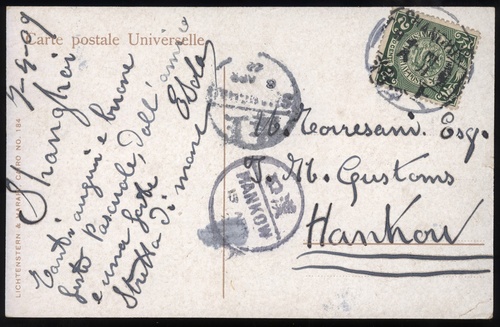 Carte postale Universelle
7-4-09
Shanghai
Tanti auguri e buone
feste Pasquali, dall'amico
e una forte
stretta di mano
M. Torresani. Esq.
I. M. Customs
Hankou
HANKOW
漢口
LICHTENSTERN & HARARI, CAIRO NO. 184